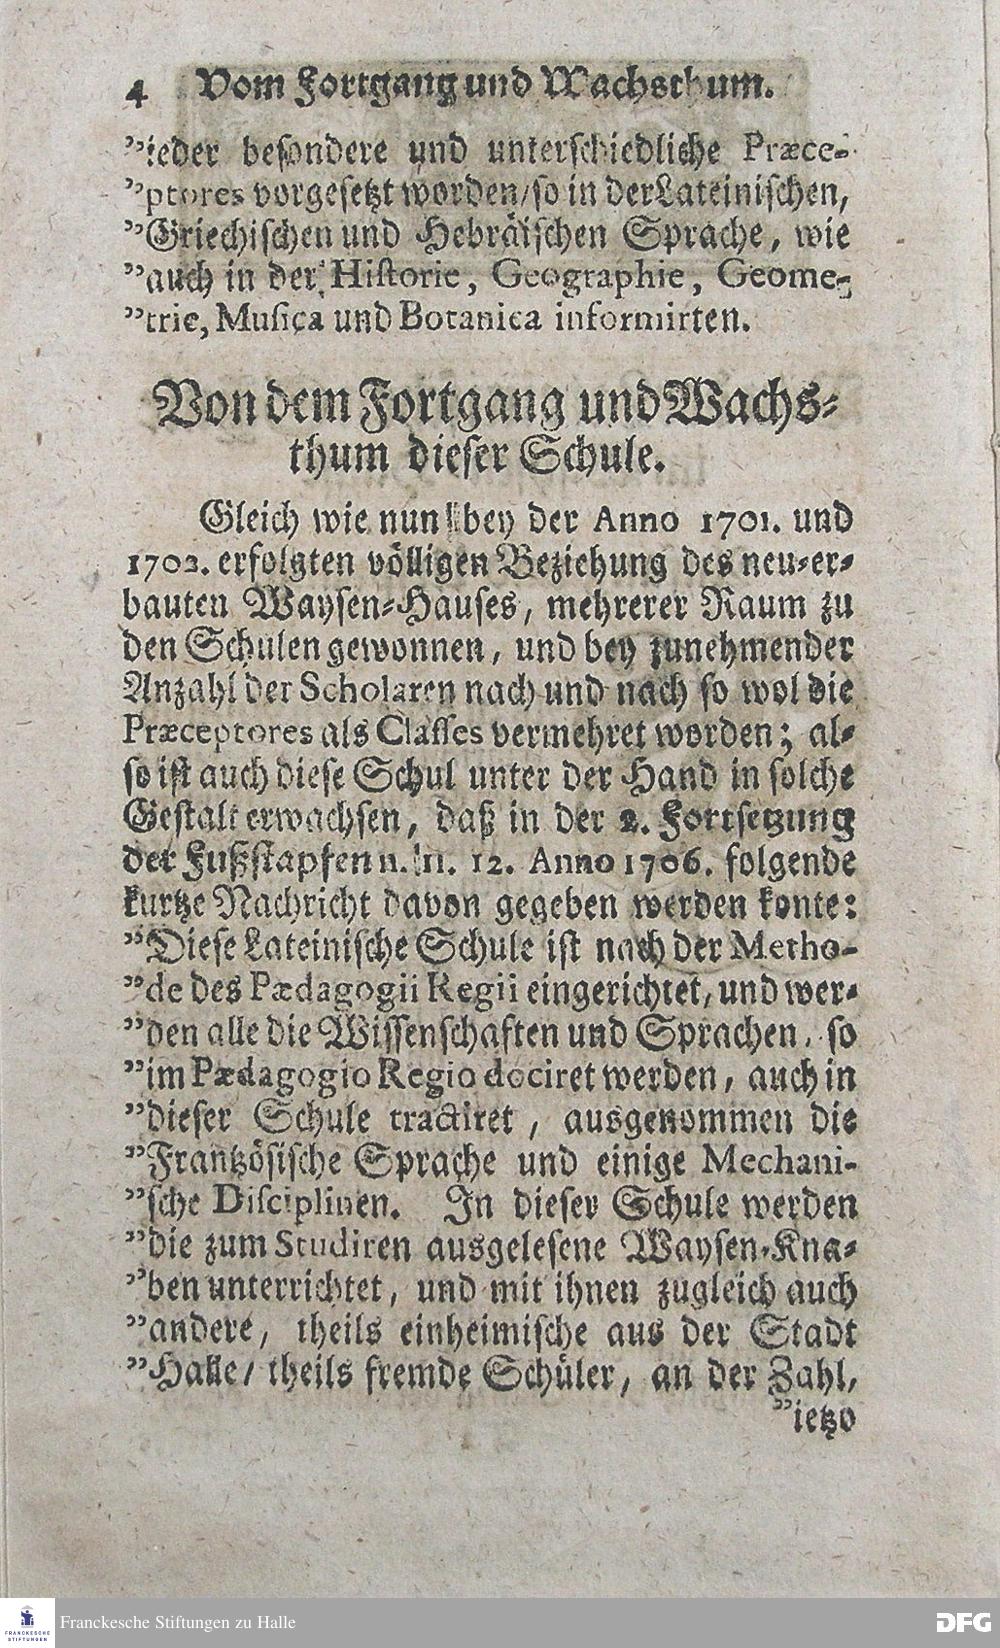 4 Vom Fortgang und Wachsthum.
”ieder besondere und unterschiedliche Præce-
”ptores vorgesetzt worden/ so in der Lateinischen,
”Griechischen und Hebräischen Sprache, wie
”auch in der Historie, Geographie, Geome-
”trie, Musica und Botanica informirten.
Von dem Fortgang und Wachs-
thum dieser Schule.
Gleich wie nun bey der Anno 1701. und
1702. erfolgten völligen Beziehung des neu-er-
bauten Waysen-Hauses, mehrerer Raum zu
den Schulen gewonnen, und bey zunehmender
Anzahl der Scholaren nach und nach so wol die
Præceptores als Classes vermehret worden; al-
so ist auch diese Schul unter der Hand in solche
Gestalt erwachsen, daß in der 2. Fortsetzung
der Fußstapfen n. 11. 12. Anno 1706. folgende
kurtze Nachricht davon gegeben werden konte:
”Diese Lateinische Schule ist nach der Metho-
”de des Pædagogii Regii eingerichtet, und wer-
”den alle die Wissenschaften und Sprachen, so
”im Pædagogio Regio dociret werden, auch in
”dieser Schule tractiret, ausgenommen die
”Frantzösische Sprache und einige Mechani-
”sche Disciplinen. In dieser Schule werden
”die zum Studiren ausgelesene Waysen-Kna-
”ben unterrichtet, und mit ihnen zugleich auch
”andere, theils einheimische aus der Stadt
”Halle/ theils fremde Schüler, an der Zahl,
”ietzo
FRANCKESCHE STIFTUNGEN
Franckesche Stiftungen zu Halle
DFG